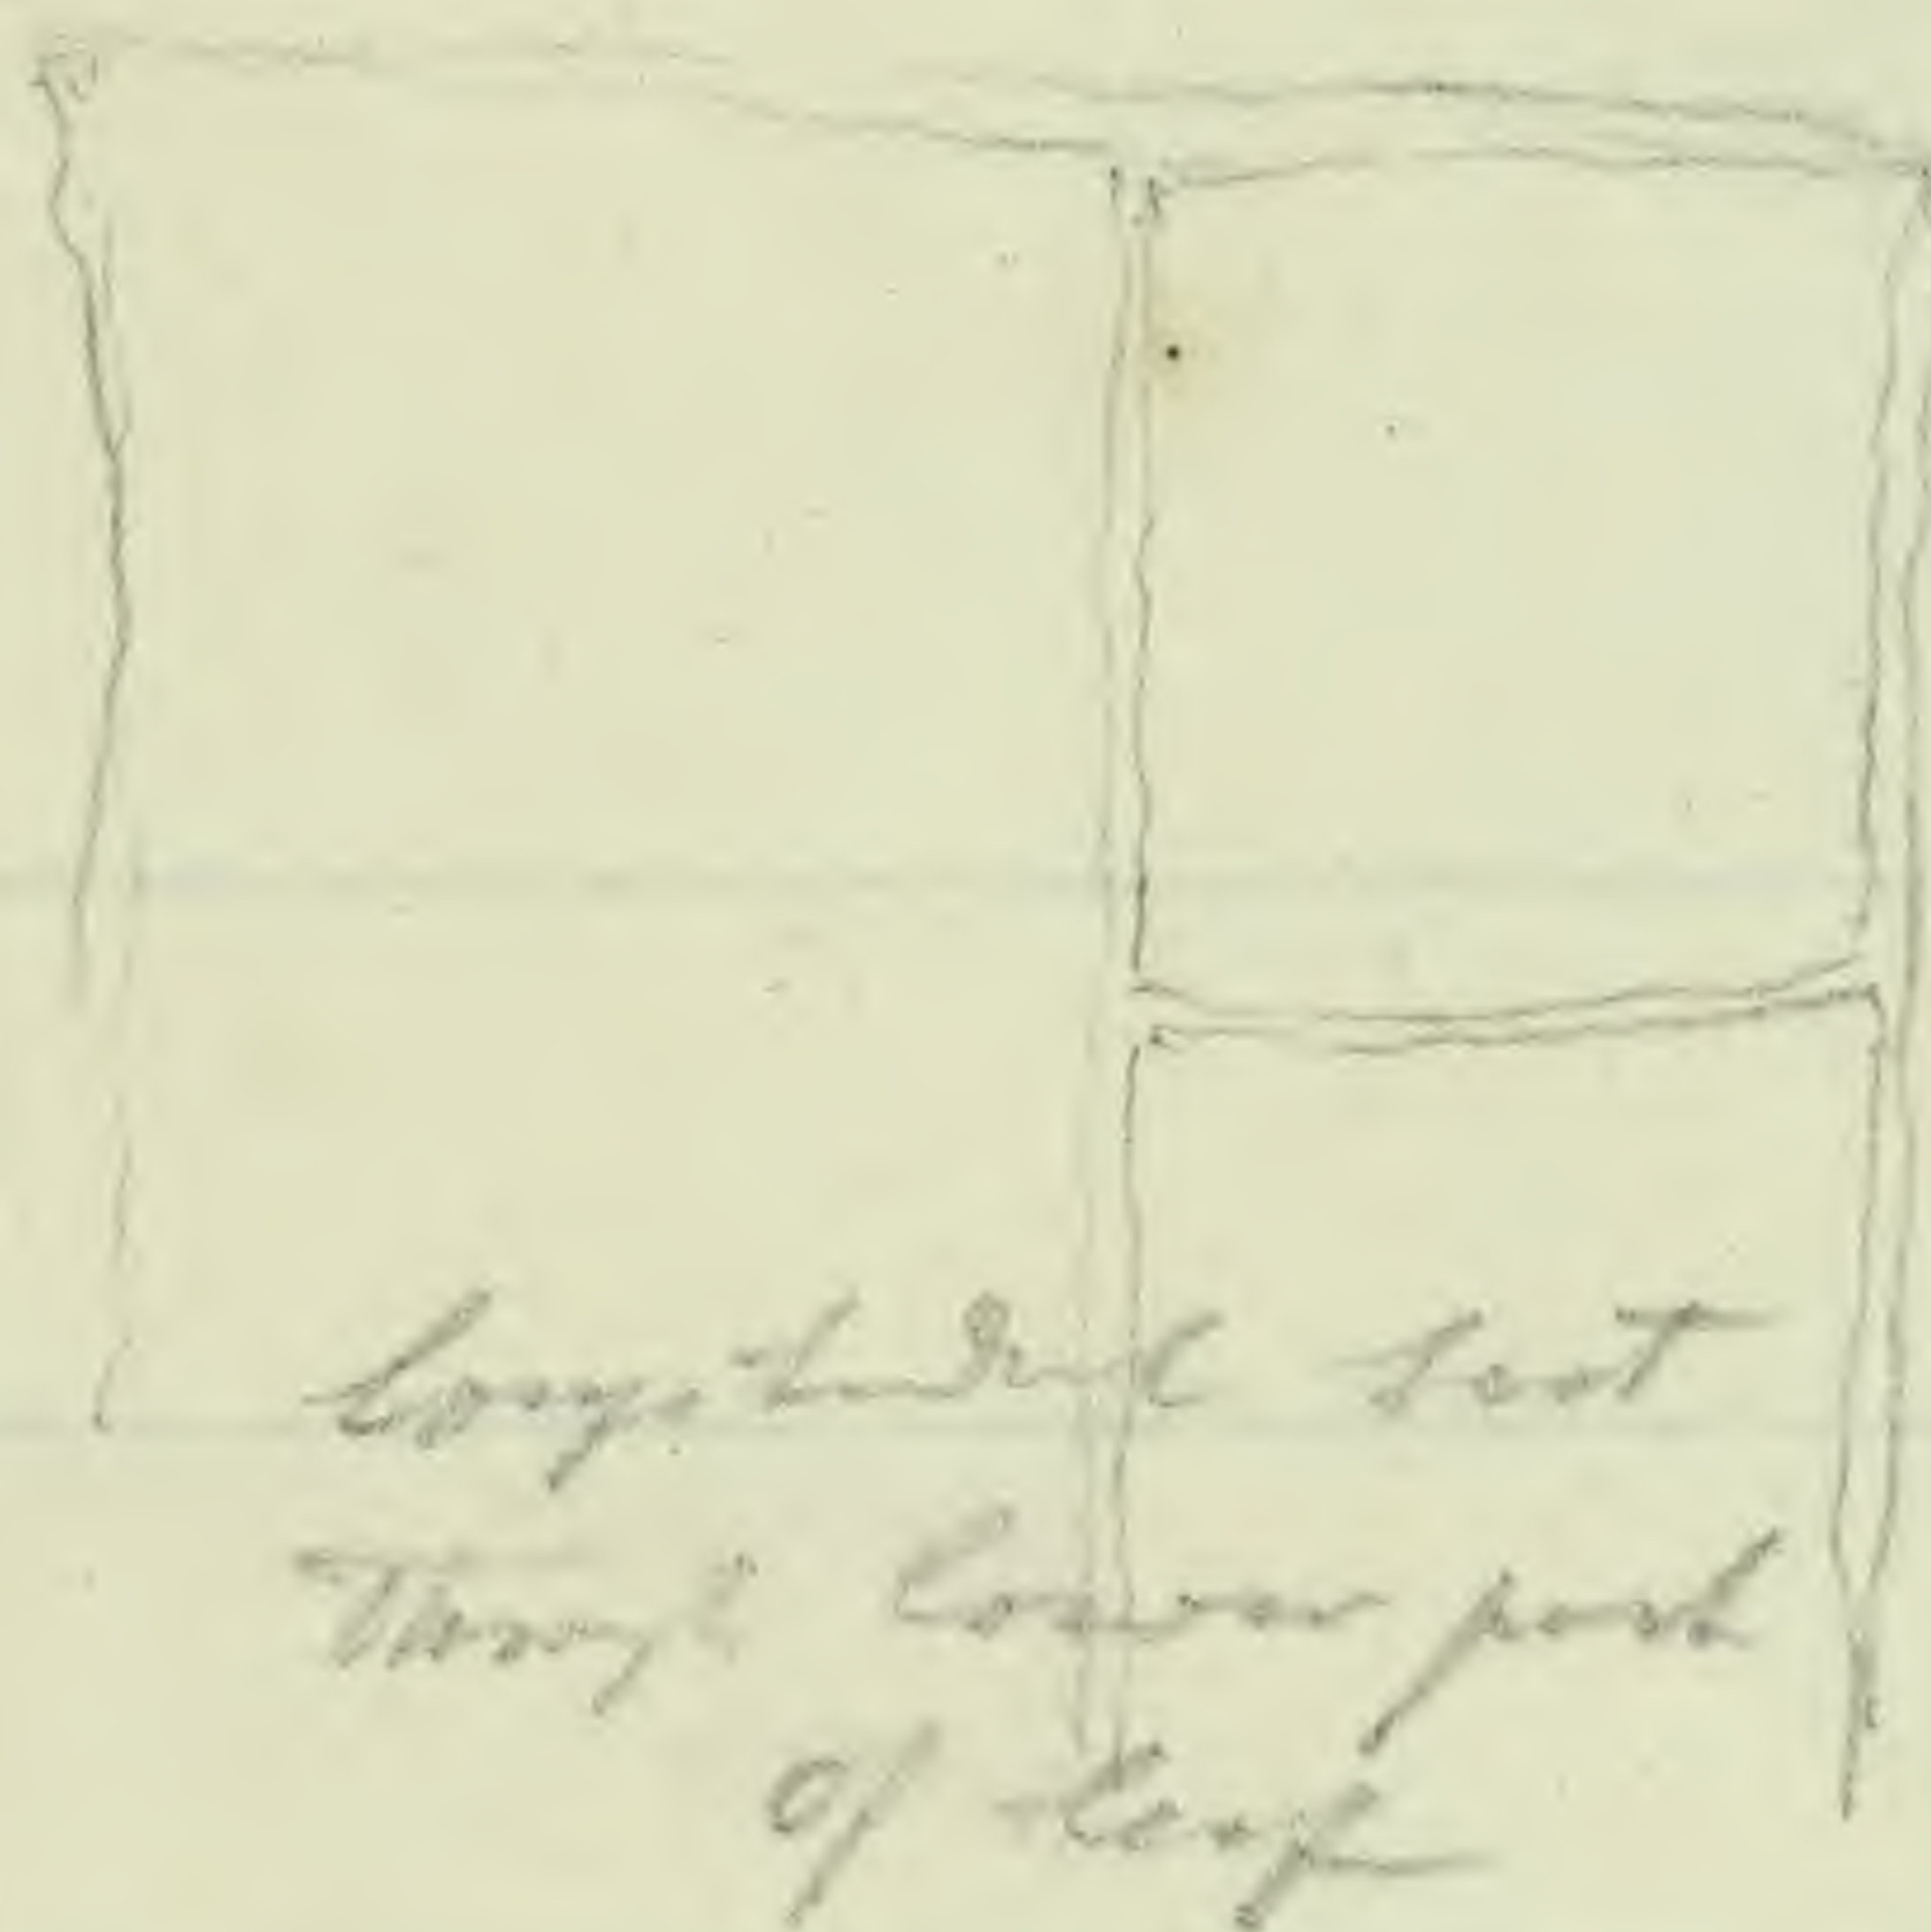 Longitudinal Sect
Through Convex part
of leaf